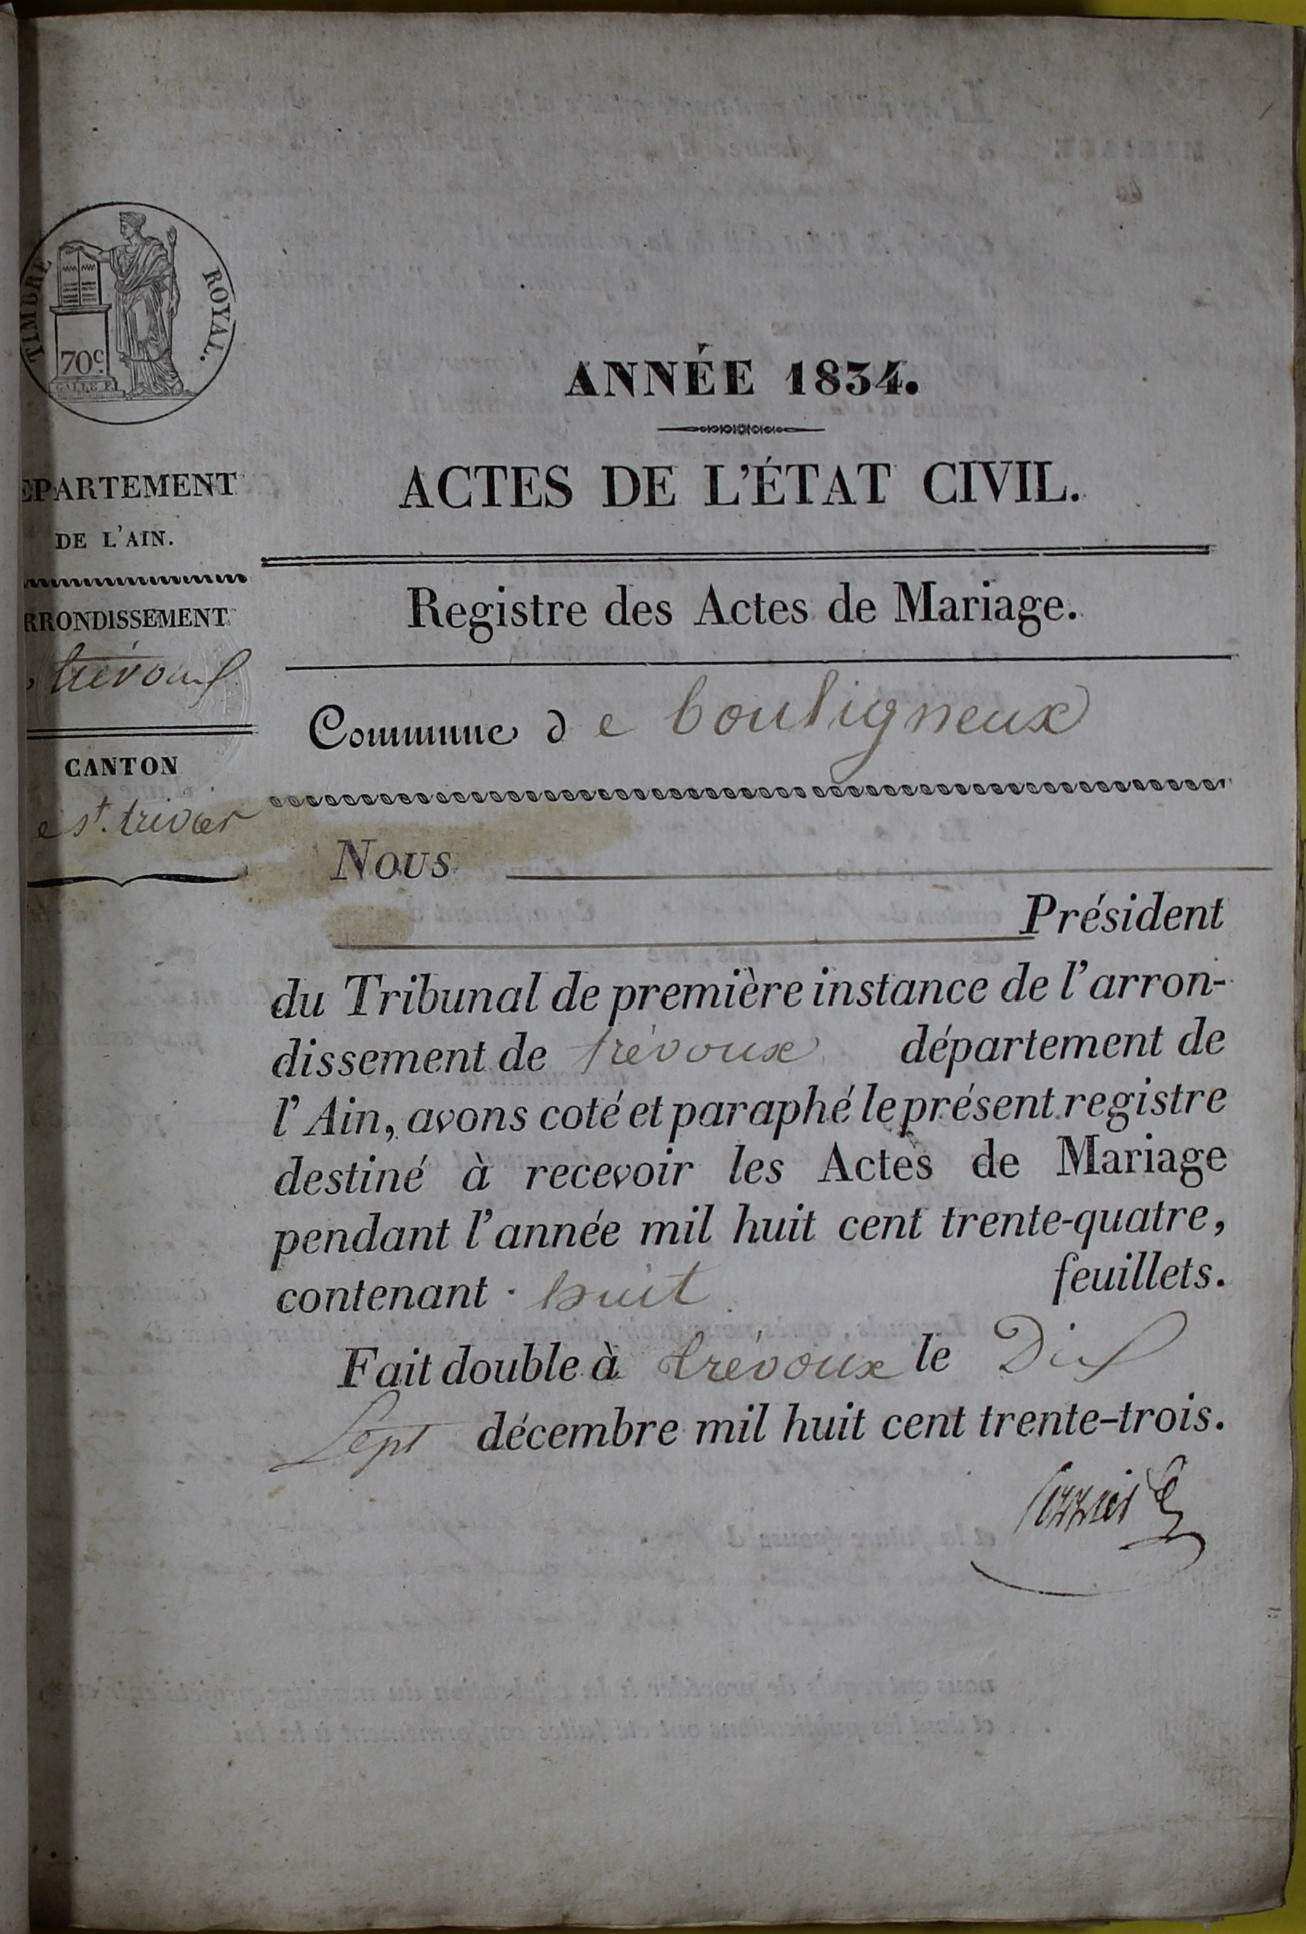 TIMBRE ROYAL.
70c.
EPARTEMENT
DE L'AIN.
RRONDISSEMENT
trévoux
CANTON
e st. trivier
ANNÉE 1834.
ACTES DE L'ÉTAT CIVIL.
Registre des Actes de Mariage.
Commune de bouligneux
Nous
Président
du Tribunal de première instance de l'arron-
dissement de trévoux département de
l'Ain, avons coté et paraphé le présent registre
destiné à recevoir les Actes de Mariage
pendant l'année mil huit cent trente-quatre,
contenant huit feuillets.
Fait double à trévoux le Dix
Sept décembre mil huit cent trente-trois.